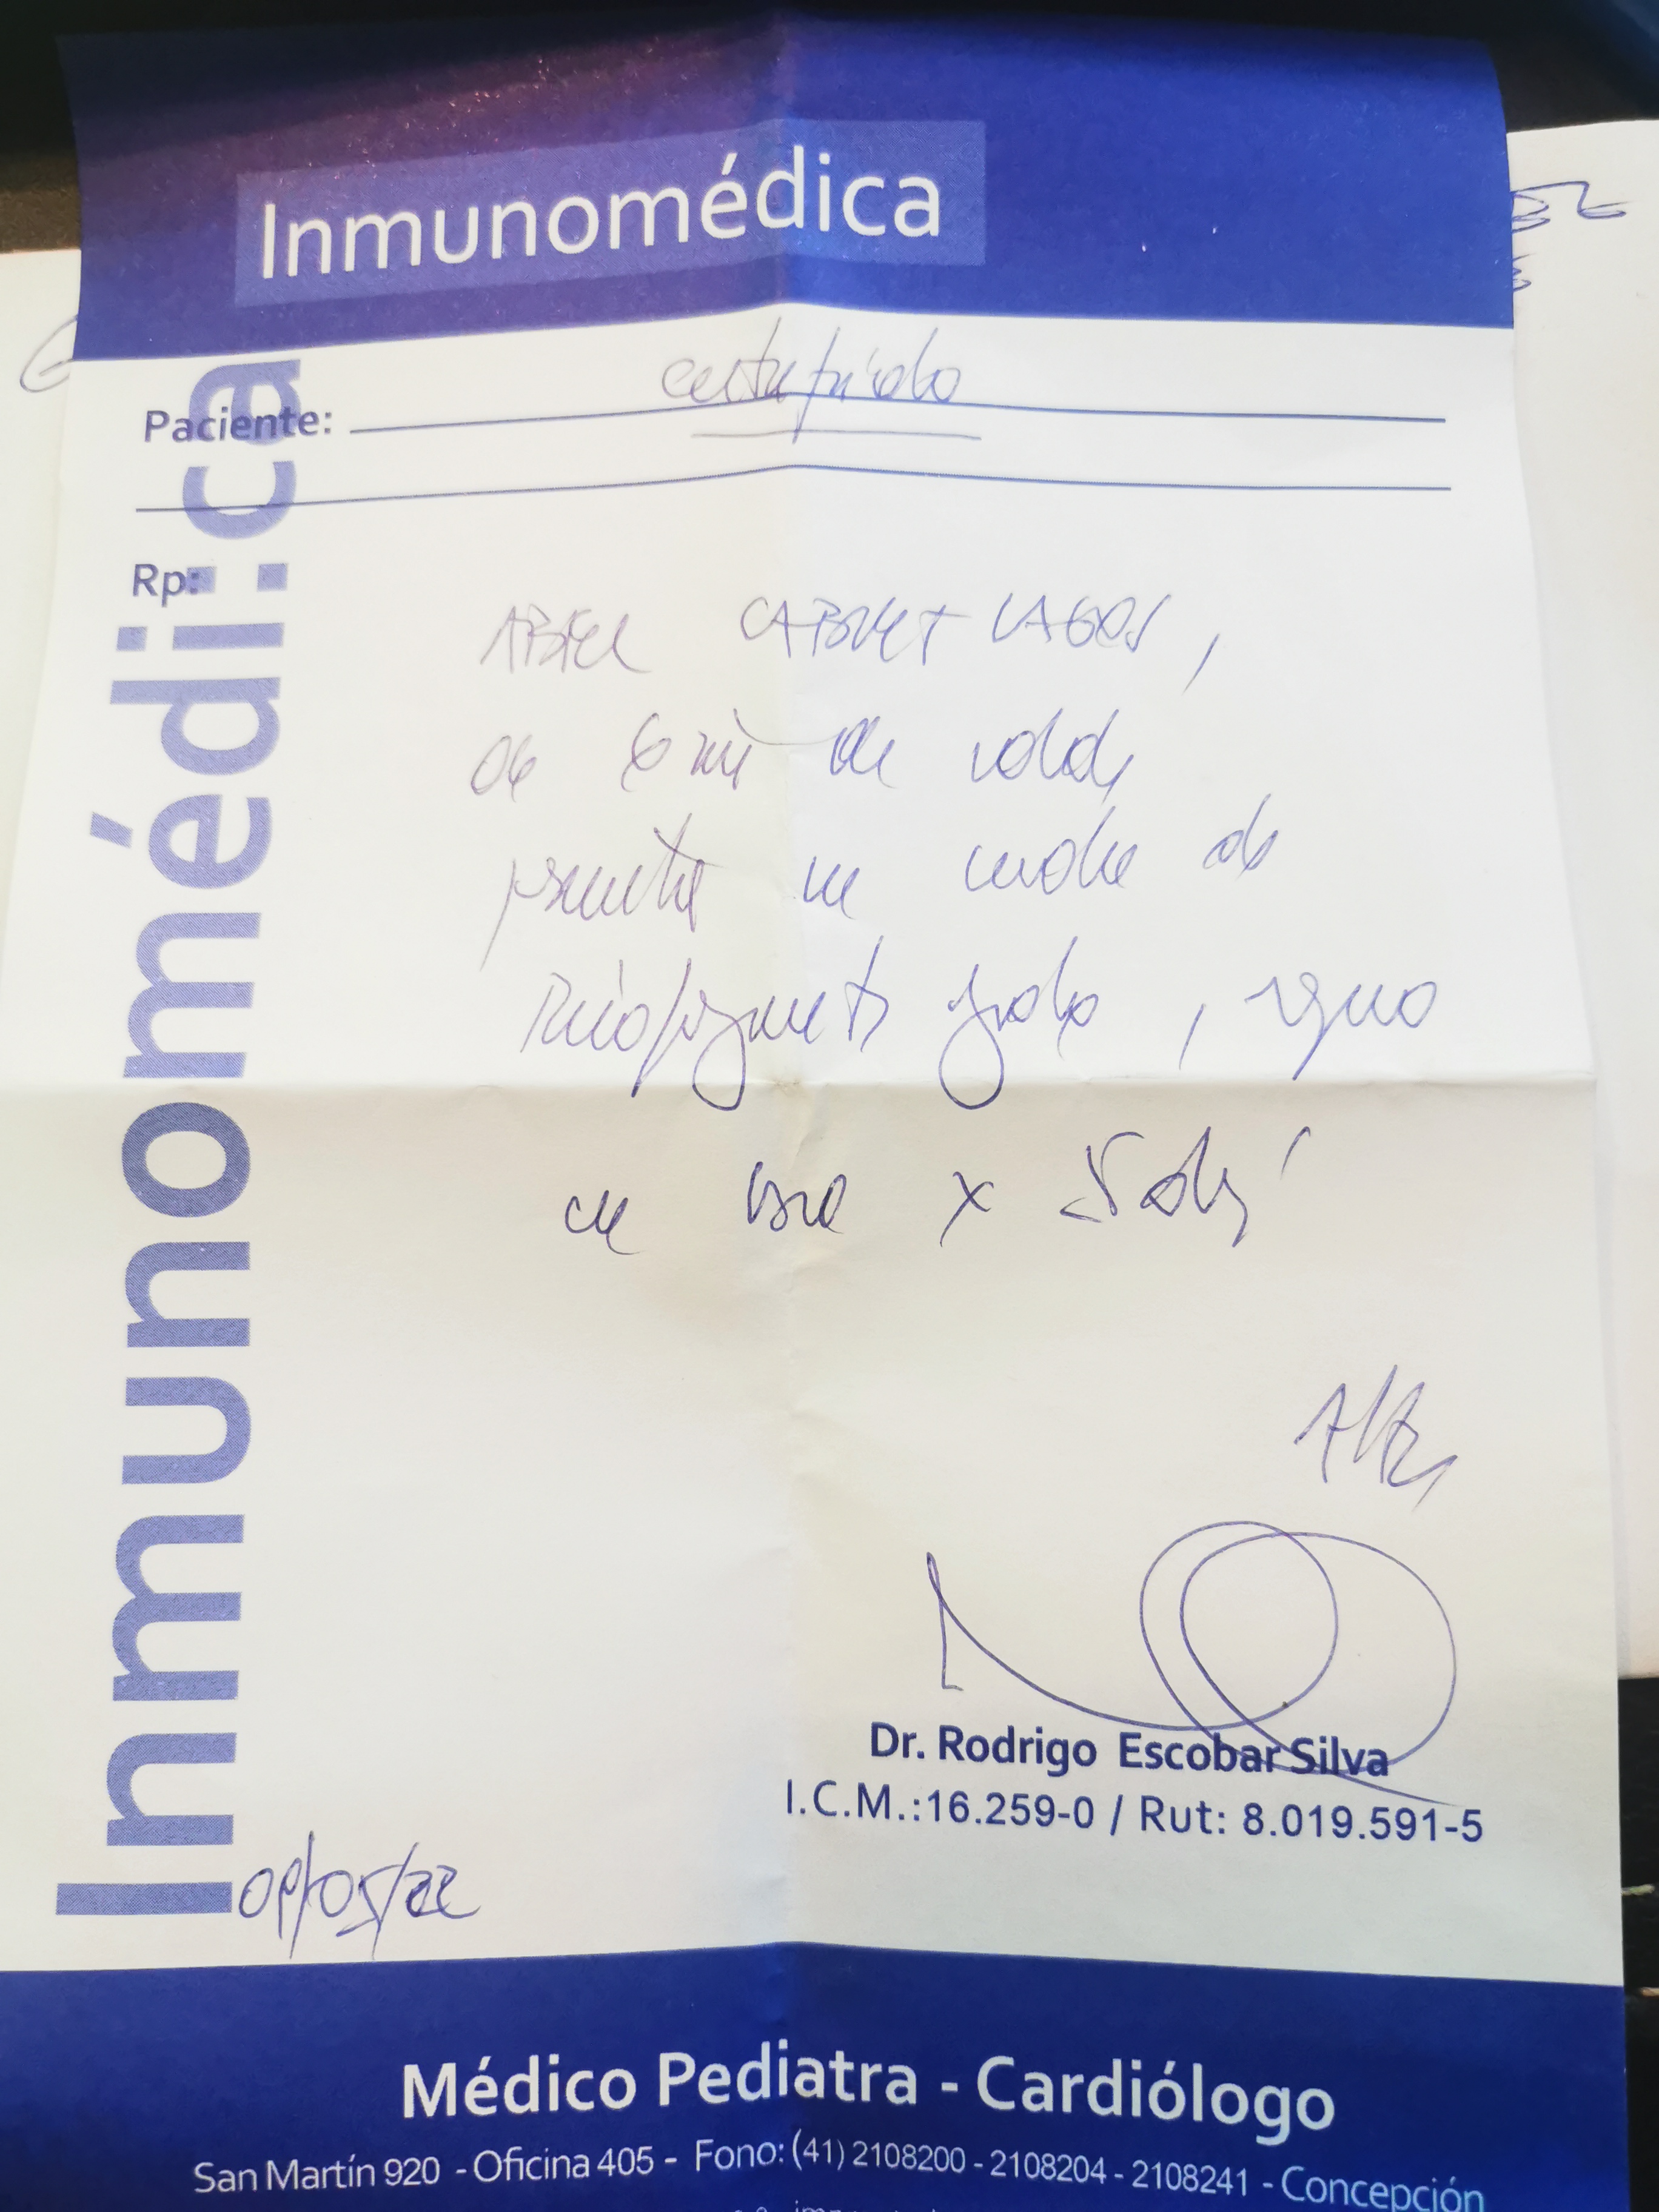 Inmunomédica
Certificado
Paciente:
Rp:
Inmunomédica
ABIEL CABRET LAGOS,
de 6 de edad,
presenta un cuadro de
, reposo
en casa x 5 días
Dr. Rodrigo Escobar Silva
I.C.M.:16.259-0 / Rut: 8.019.591-5
09/05/22
Médico Pediatra - Cardiólogo
San Martín 920 - Oficina 405 - Fono: (41) 2108200 - 2108204 - 2108241 - Concepción